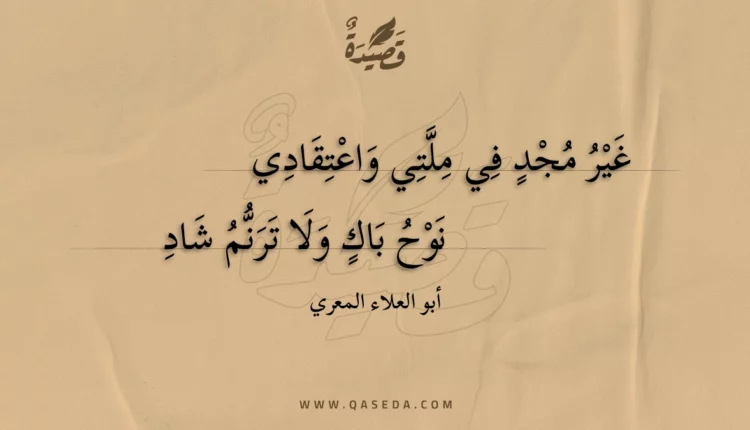 قَصِيدَةٌ
غَيْرُ مُجْدٍ فِي مِلَّتِي وَاعْتِقَادِي
نَوْحُ بَاكٍ وَلَا تَرَنُّمُ شَادِ
أبو العلاء المعري
WWW.QASEDA.COM